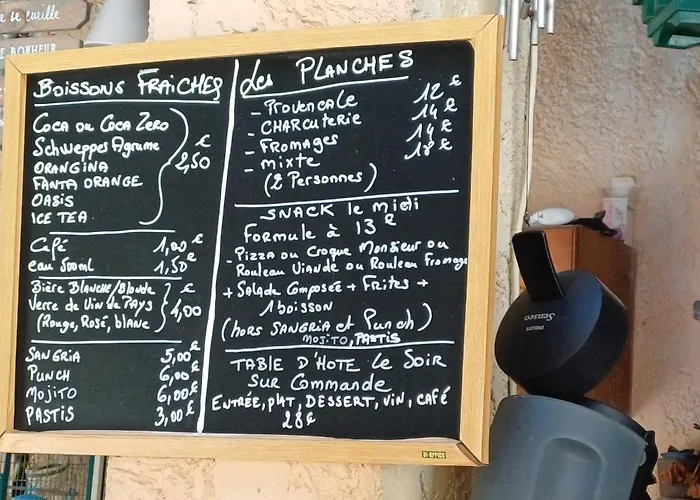 se cueille
E BONHEUR
BOISSONS FRAICHES
COCA OU COCA ZERO
Schweppes Agrume
ORANGINA
FANTA ORANGE
OASIS
ICE TEA
2,50 €
Café 1,00 €
eau 500ml 1,50 €
Bière BLANCHE/Blonde
Verre de Vin de PAYS
(Rouge, Rosé, blanc)
4,00 €
SANGRIA 5,00 €
PUNCH 6,00 €
MOJITO 6,00 €
PASTIS 3,00 €
Les PLANCHES
- PROVENCALE 12 €
- CHARCUTERIE 14 €
- FROMAGES 14 €
- mixte 18 €
(2 Personnes)
SNACK le midi
Formule à 13 €
- Pizza ou Croque Monsieur ou
Rouleau Viande ou Rouleau Fromage
+ Salade Composée + Frites +
1 boisson
(hors SANGRIA et Punch)
MOJITO, PASTIS
TABLE D'HOTE le SOIR
SUR Commande
ENTRÉE, plat, DESSERT, VIN, CAFÉ
28 €
PHILIPS
Senseo